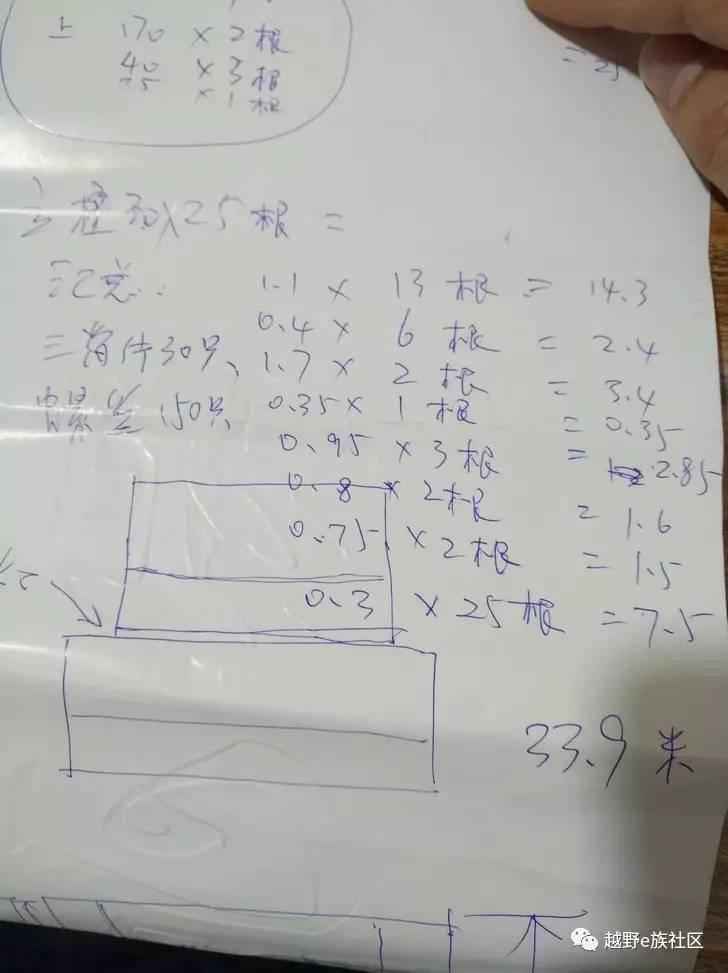 上 170 × 2根
40 × 3根
35 × 1根
= 25
立柱30×25根 =
1.1 × 13根 = 14.3
0.4 × 6根 = 2.4
三角件30只、 1.7 × 2根 = 3.4
螺丝150只 0.35 × 1根 = 0.35
0.95 × 3根 = 2.85
0.8 × 2根 = 1.6
0.75 × 2根 = 1.5
0.3 × 25根 = 7.5
33.9 米
越野e族社区